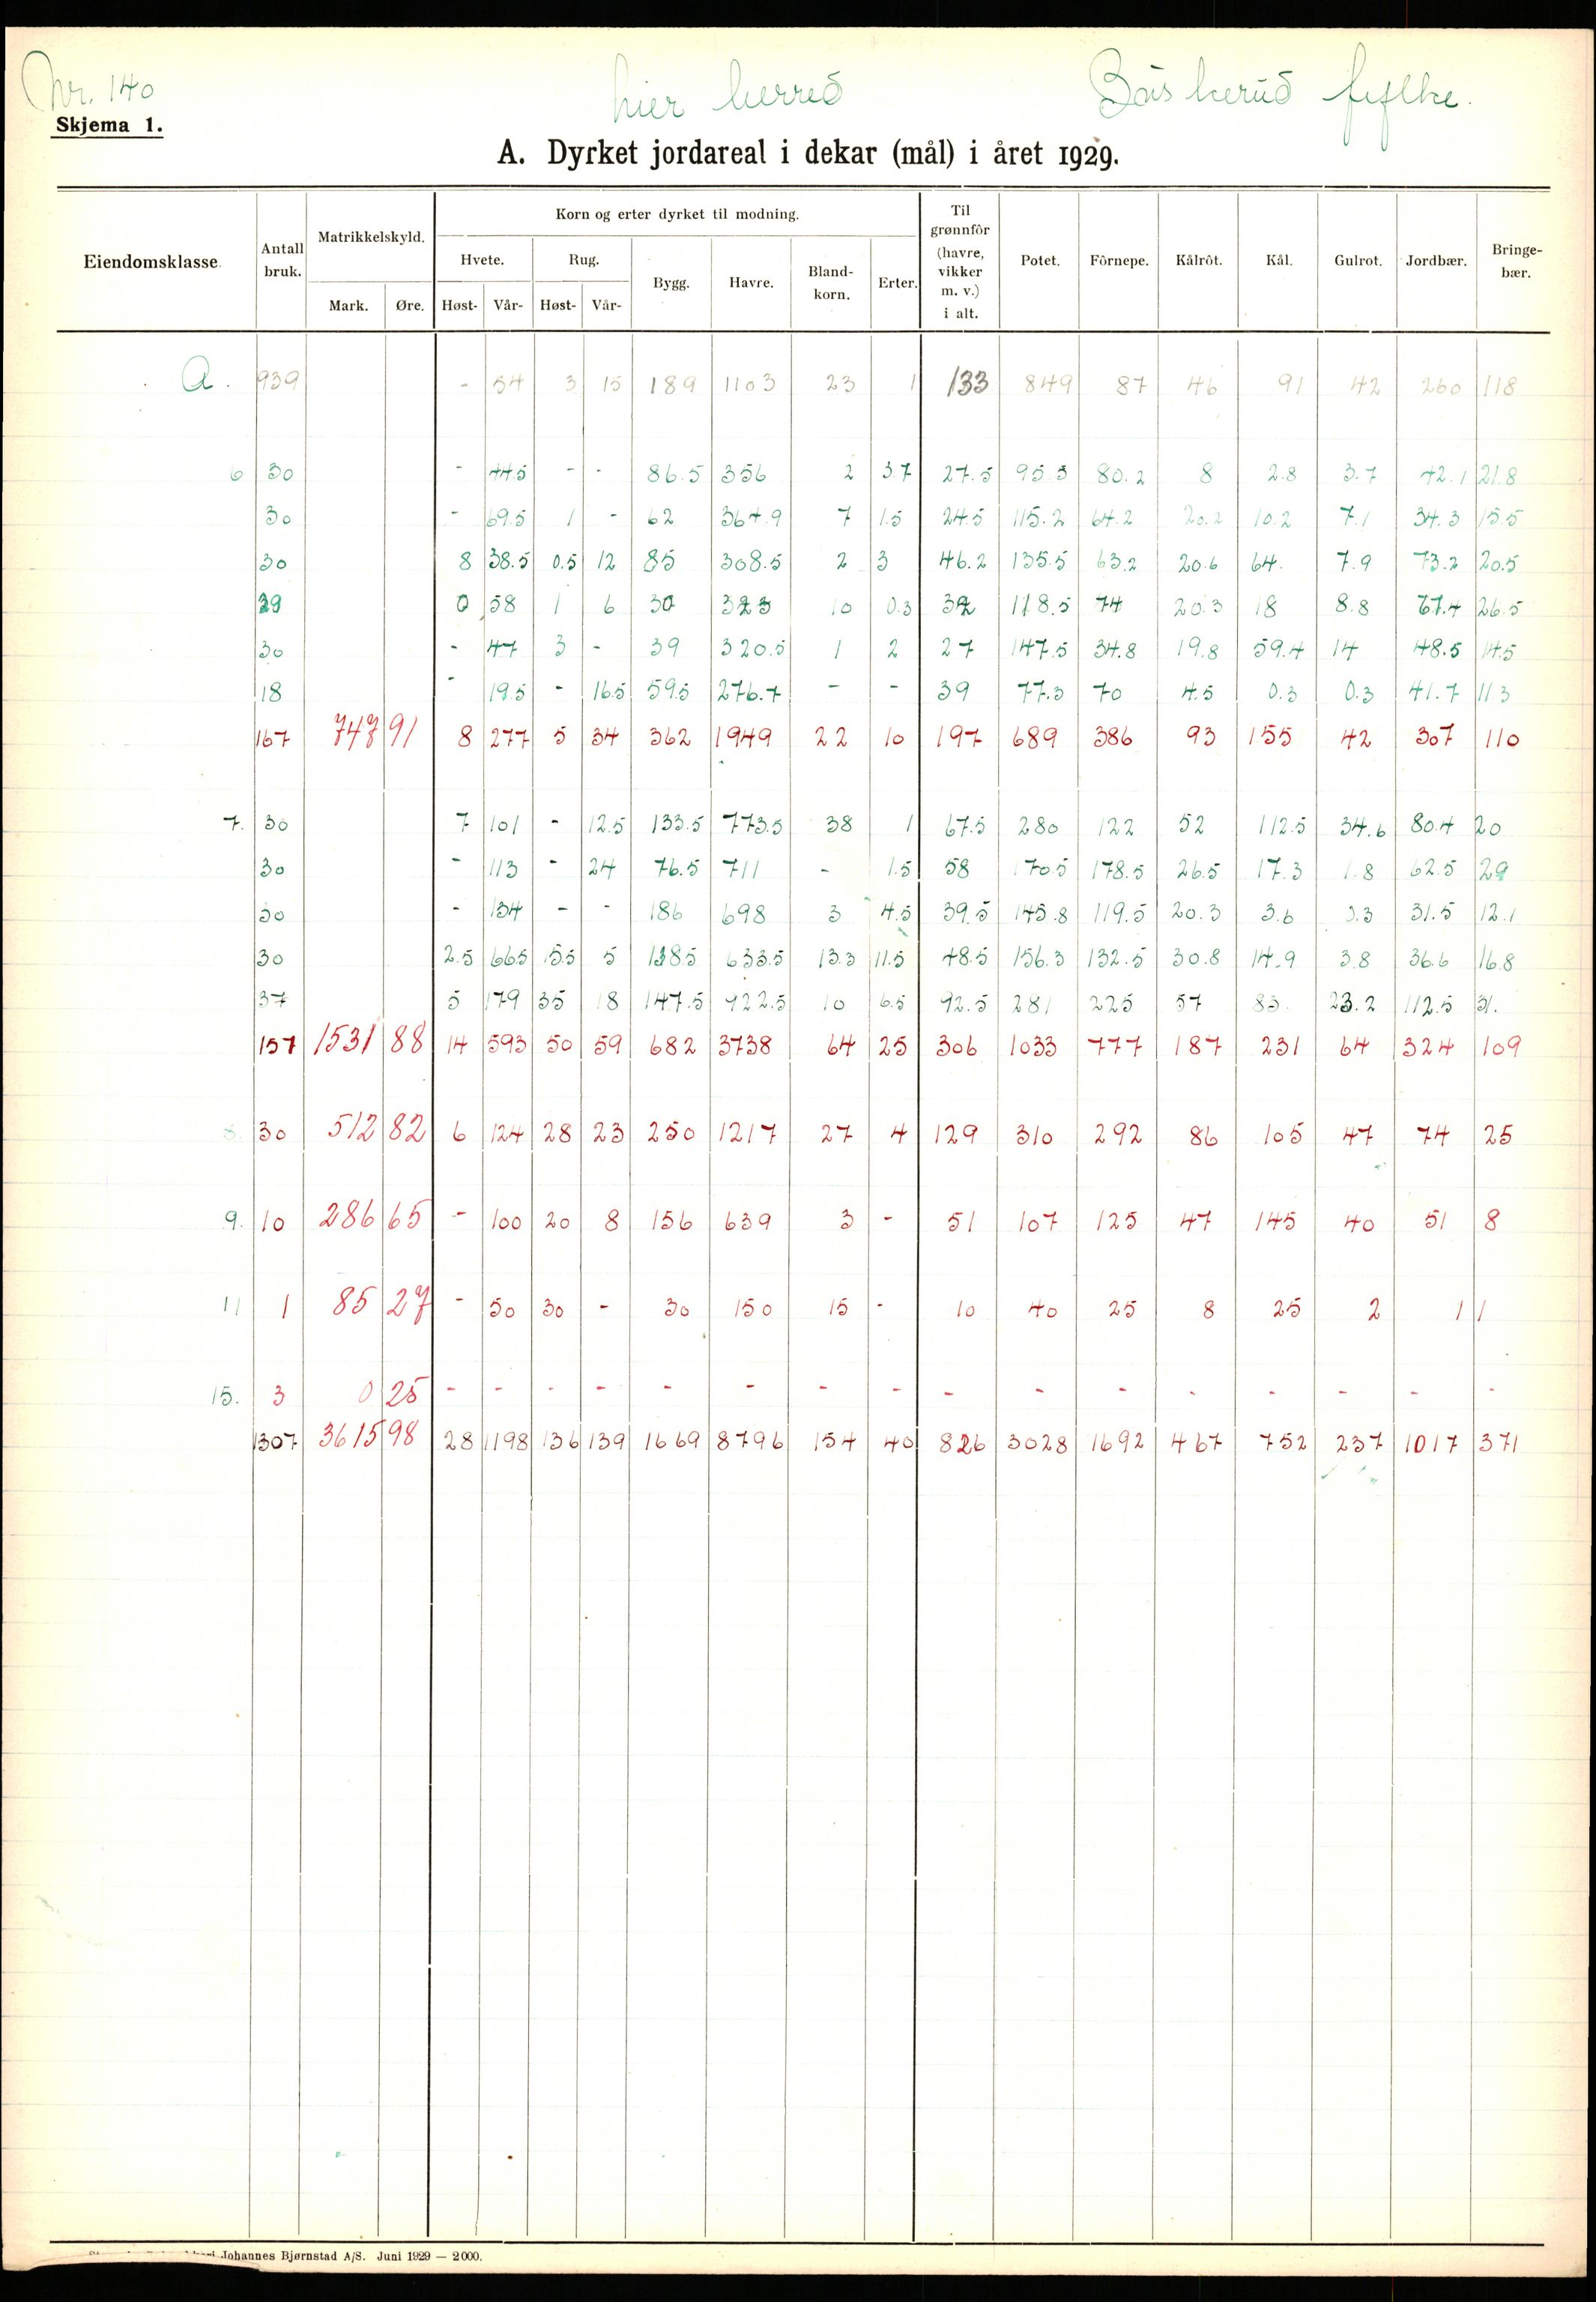 Nr. 140 Lier herred Buskerud fylke.
Skjema 1.
A. Dyrket jordareal i dekar (mål) i året 1929.
Eiendomsklasse. Antall bruk. Matrikkelskyld. Mark. Øre. Korn og erter dyrket til modning. Hvete. Høst- Vår- Rug. Høst- Vår- Bygg. Havre. Bland-korn. Erter. Til grønnfôr (havre, vikker m. v.) i alt. Potet. Fôrnepe. Kålrôt. Kål. Gulrot. Jordbær. Bringe-bær.
A. 939 - 54 3 15 189 1103 23 1 133 849 87 46 91 42 260 118
6 30 - 44.5 - - 86.5 356 2 3.7 27.5 95.5 80.2 8 2.8 3.7 42.1 21.8
30 - 69.5 1 - 62 364.9 7 1.5 24.5 115.2 64.2 20.2 10.2 7.1 34.3 15.5
30 8 38.5 0.5 12 85 308.5 2 3 46.2 135.5 63.2 20.6 64. 7.9 73.2 20.5
29 0 58 1 6 30 323 10 0.3 32 118.5 74 20.3 18 8.8 67.4 26.5
30 - 47 3 - 39 320.5 1 2 27 147.5 34.8 19.8 59.4 14 48.5 14.5
18 - 19.5 - 16.5 59.5 276.7 - - 39 77.3 70 4.5 0.3 0.3 41.7 11.3
167 747 91 8 277 5 34 362 1949 22 10 197 689 386 93 155 42 307 110
7. 30 7 101 - 12.5 133.5 773.5 38 1 67.5 280 122 52 112.5 34.6 80.4 20
30 - 113 - 24 76.5 711 - 1.5 58 170.5 178.5 26.5 17.3 1.8 62.5 29
30 - 134 - - 186 698 3 4.5 39.5 145.8 119.5 20.3 3.6 0.3 31.5 12.1
30 2.5 66.5 15.5 5 138.5 633.5 13.3 11.5 48.5 156.3 132.5 30.8 14.9 3.8 36.6 16.8
37 5 179 35 18 147.5 922.5 10 6.5 92.5 281 225 57 83. 23.2 112.5 31.
157 1531 88 14 593 50 59 682 3738 64 25 306 1033 777 187 231 64 324 109
8. 30 512 82 6 124 28 23 250 1217 27 4 129 310 292 86 105 47 74 25
9. 10 286 65 - 100 20 8 156 639 3 - 51 107 125 47 145 40 51 8
11 1 85 27 - 50 30 - 30 150 15 - 10 40 25 8 25 2 1 1
15. 3 0 25 - - - - - - - - - - - - - - - -
1307 3615 98 28 1198 136 139 1669 8796 154 40 826 3028 1692 467 752 237 1017 371
Johannes Bjørnstad A/S. Juni 1929 — 2000.